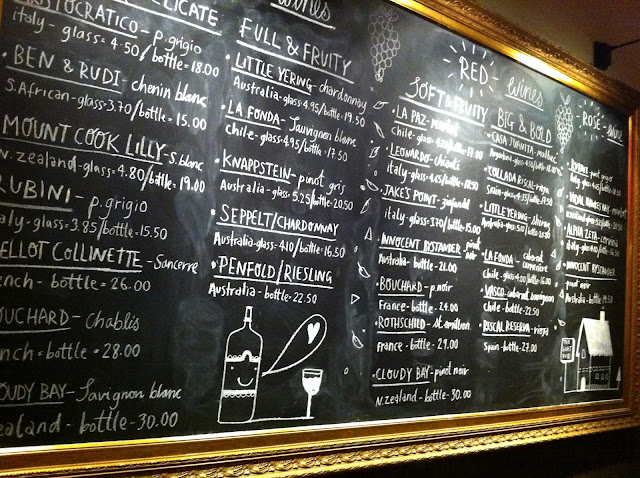 DELICATE
ARISTOCRATICO - p.grigio
italy - glass = 4.50 / bottle = 18.00
• BEN & RUDI - chenin blanc
S. African - glass - 3.70 / bottle - 15.00
MOUNT COOK LILLY - S. blanc
N. zealand - glass - 4.80 / bottle - 19.00
RUBINI - p. grigio
italy - glass - 3.85 / bottle - 15.50
BELLOT COLLINETTE - Sancerre
French - bottle - 26.00
BOUCHARD - chablis
French = bottle = 28.00
CLOUDY BAY - Sauvignon blanc
N. Zealand - bottle - 30.00
wines
FULL & FRUITY
LITTLE YERING - chardonnay
Australia - glass - 4.95 / bottle - 19.50
• LA FONDA - Sauvignon blanc
chile - glass 4.95 / bottle - 17.50
• KNAPPSTEIN - pinot gris
Australia - glass = 5.25 / bottle = 20.50
• SEPPELT / CHARDONNAY
Australia - glass - 4.10 / bottle - 16.50
• PENFOLD / RIESLING
Australia - bottle - 22.50
RED - wines
SOFT & FRUITY
• LA PAZ -
chile - glass - / bottle - 17.00
• LEONARDO - chianti
italy - glass - 4.65 / bottle - 18.50
• JAKE'S POINT - zinfandel
italy - glass - 3.70 / bottle - 15.00
• INNOCENT BYSTANDER - pinot noir
Australia - bottle - 21.00
• BOUCHARD - p. noir
France - bottle - 24.00
• ROTHSCHILD - st. emillion
France - bottle - 29.00
• CLOUDY BAY - pinot noir
N. Zealand - bottle - 30.00
BIG & BOLD
• CASA JUANITA - malbec
• COLLADA RISCAL - rioja
Spain - glass - / bottle -
• LITTLE YERING - shiraz
Australia - glass - / bottle -
• LA FONDA - cabernet carmenere
Chile - glass - 4.00 / bottle - 16.00
• VASCO - cabernet sauvignon
Chile - bottle - 22.00
• RISCAL RESERVA - rioja
Spain - bottle - 27.00
ROSÉ - wine
ALPHA ZETA -
• INNOCENT BYSTANDER
pinot noir
Australia - bottle - 19.50